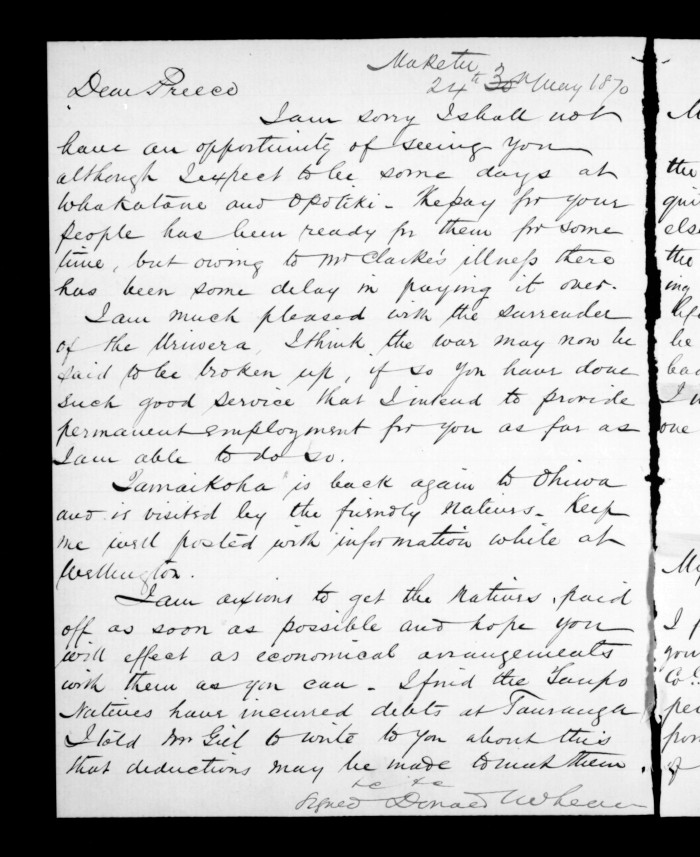 Maketu
24th 30th May 1870
Dear Preece
I am sorry I shall not
have an opportunity of seeing you
although I expect to be some days at
Whakatane and Opotiki - The pay for your
people has been ready for them for some
time, but owing to Mr Clarke's illness there
has been some delay in paying it over.
I am much pleased with the surrender
of the Uriwera, I think the war may now be
said to be broken up, if so you have done
such good service that I intend to provide
permanent employment for you as far as
I am able to do so.
"Tamaikoha" is back again to Ohiwa
and is visited by the friendly Natives. Keep
me well posted with information while at
Wellington.
I am anxious to get the Natives paid
off as soon as possible and hope you
will effect as economical arrangements
with them as you can - I find the Taupo
Natives have incurred debts at Tauranga
I told Mr Gill to write to you about this
that deductions may be made to meet them.
&c &c
Signed Donald McLean
M
the
qui
els
the
ing
be
bac
I
one
I
you
Co
per
from
of